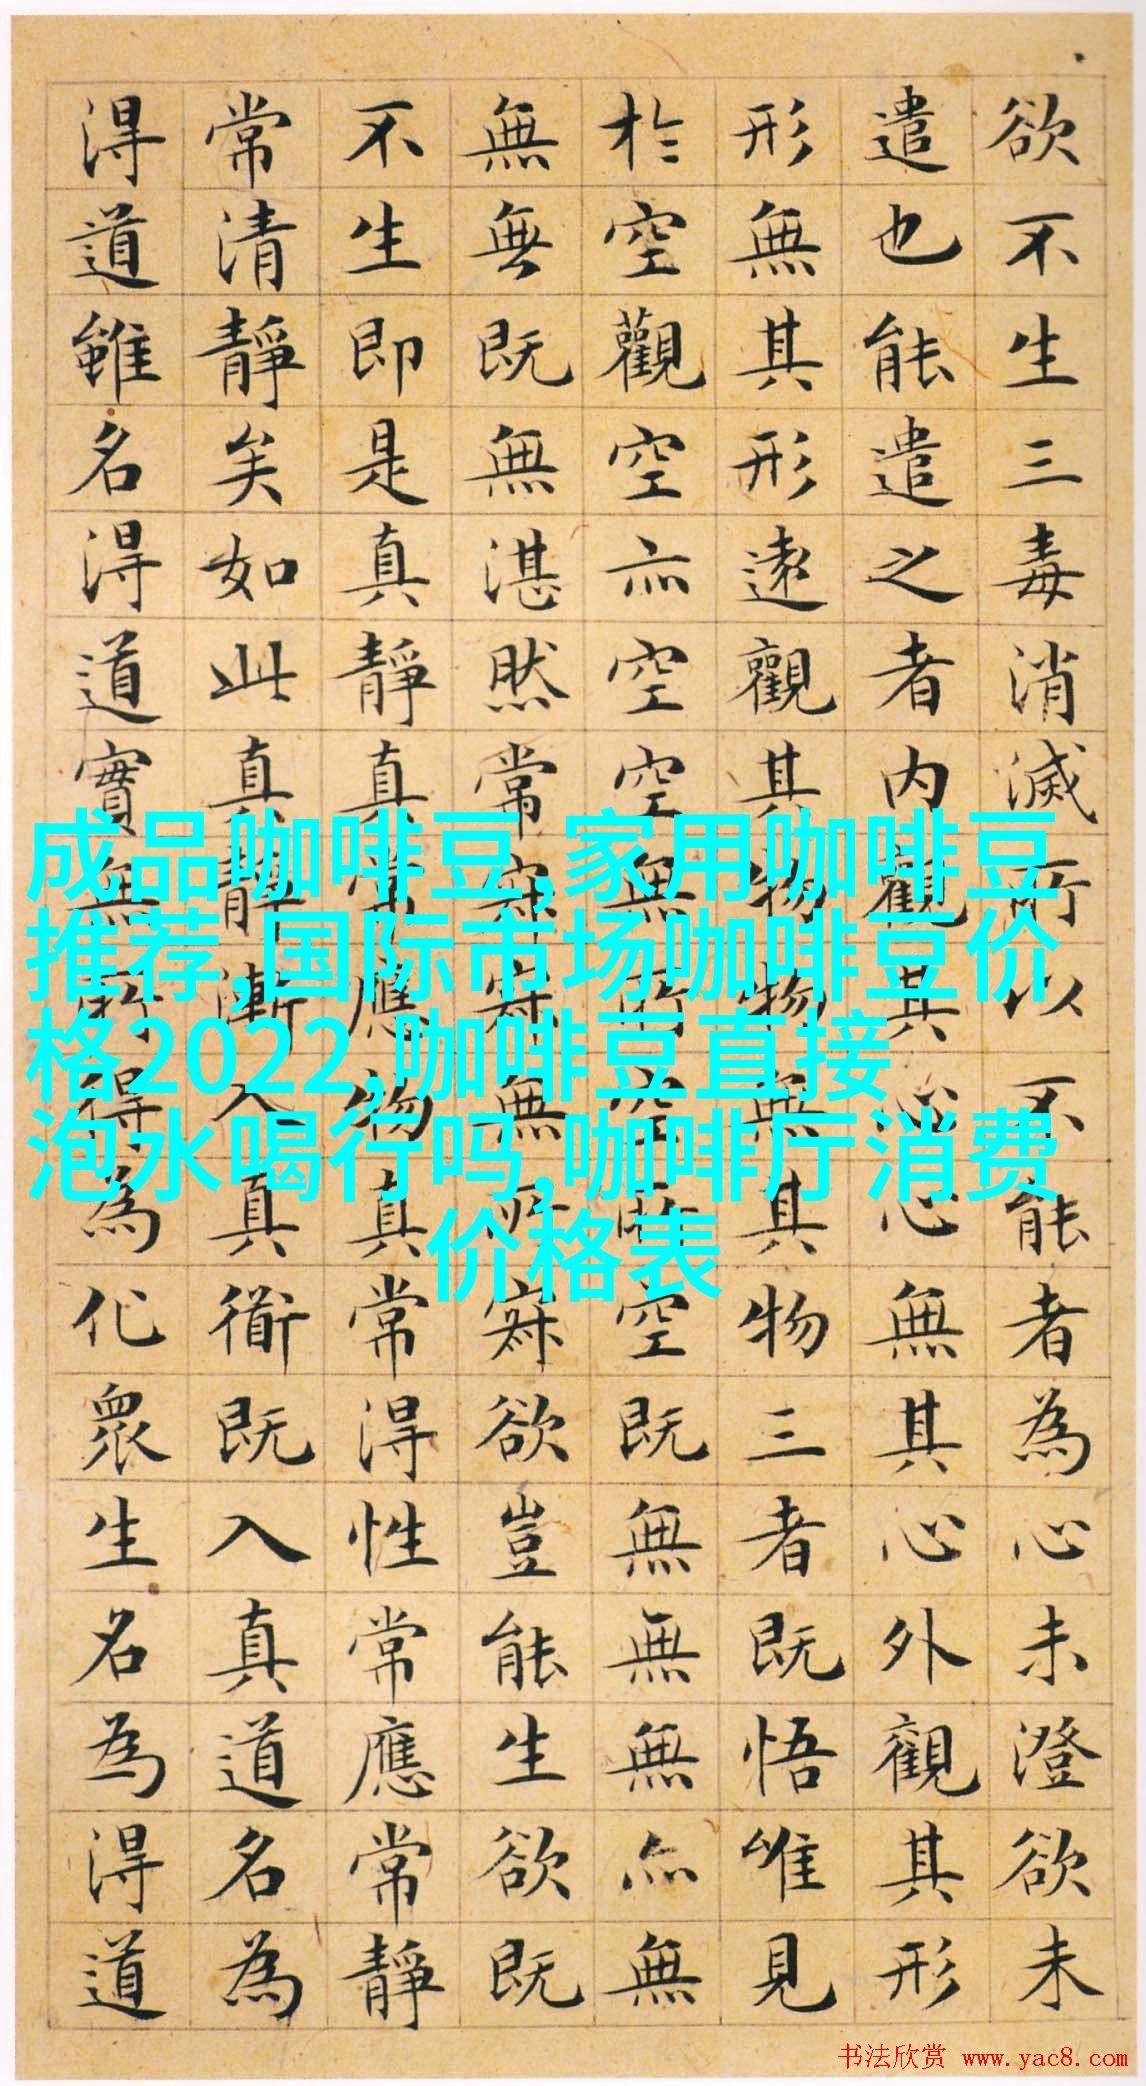 欲不生三毒消滅所以不能者為心未澄欲未
遣也能遣之者內觀其心心無其心外觀其形
形無其形遠觀其物物無其物三者既悟唯見
於空觀空亦空空無所空所空既無無無亦無
無無既無湛然常寂寂無所寂欲豈能生欲既
不生即是真靜真常應物真常得性常應常靜
常清靜矣如此真靜漸入真衜既入真道名為
得道雖名得道實無所得為化眾生名為得道
成品咖啡豆,家用咖啡豆
推荐,国际市场咖啡豆价
格2022,咖啡豆直接
泡水喝行吗,咖啡厅消费
价格表
书法欣赏 www.yac8.com